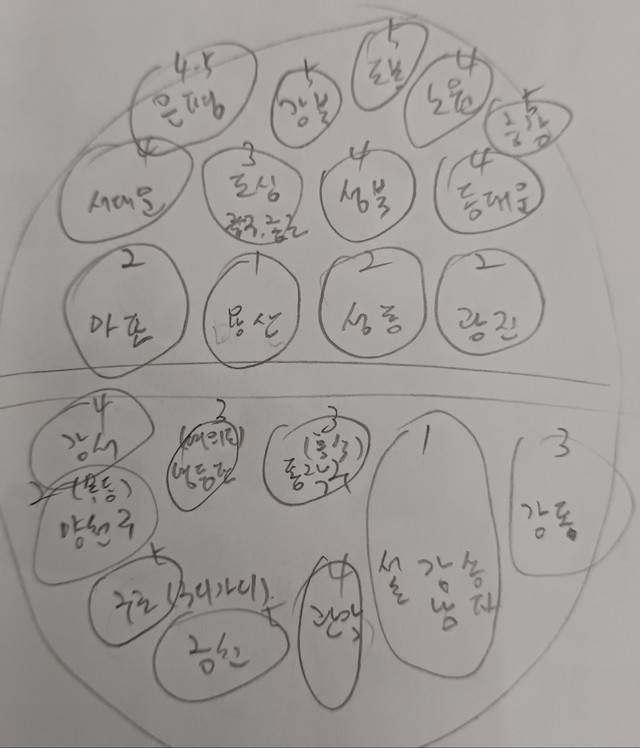 4.5
은평
5
강북
5
도봉
4
노원
5
중랑
4
서대문
3
도심
종로, 중구
4
성북
4
동대문
2
마포
1
용산
2
성동
2
광진
4
강서
3
(여의도)
영등포
3
동작구
1
서초 강남 송파
3
강동
2 (목동)
양천구
5
구로 (구디가디)
5
금천
4
관악